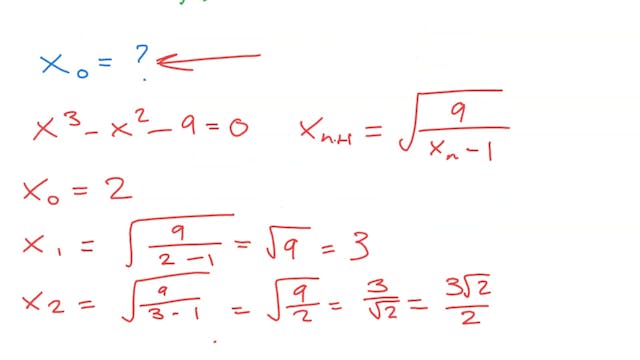 x₀ = ?
x³ - x² - 9 = 0   xₙ₊₁ = √(9/(xₙ - 1))
x₀ = 2
x₁ = √(9/(2 - 1)) = √9 = 3
x₂ = √(9/(3 - 1)) = √(9/2) = 3/√2 = 3√2/2